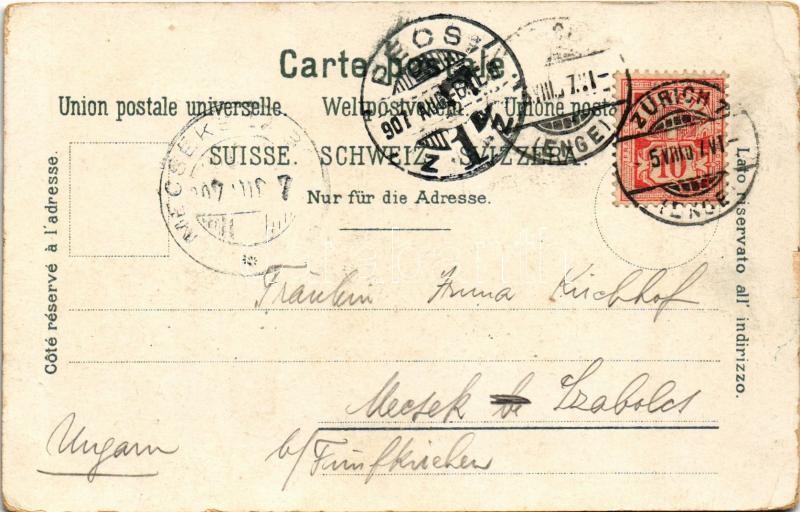 Carte postale
Union postale universelle. Weltpostverein. Unione posta
SUISSE. SCHWEIZ. SVIZZERA.
Nur für die Adresse.
Côté réservé à l'adresse.
Lato riservato all' indirizzo.
PECS
907 AUG
ZÜRICH 7
5 VIII 07 VI
(ENGE)
VIII 07 VI-
(ENGE)
10
MECSEK
907 7
Fräulein Anna Kirchhof
Mecsek Szabolcs
Ungarn b/ Fünfkirchen